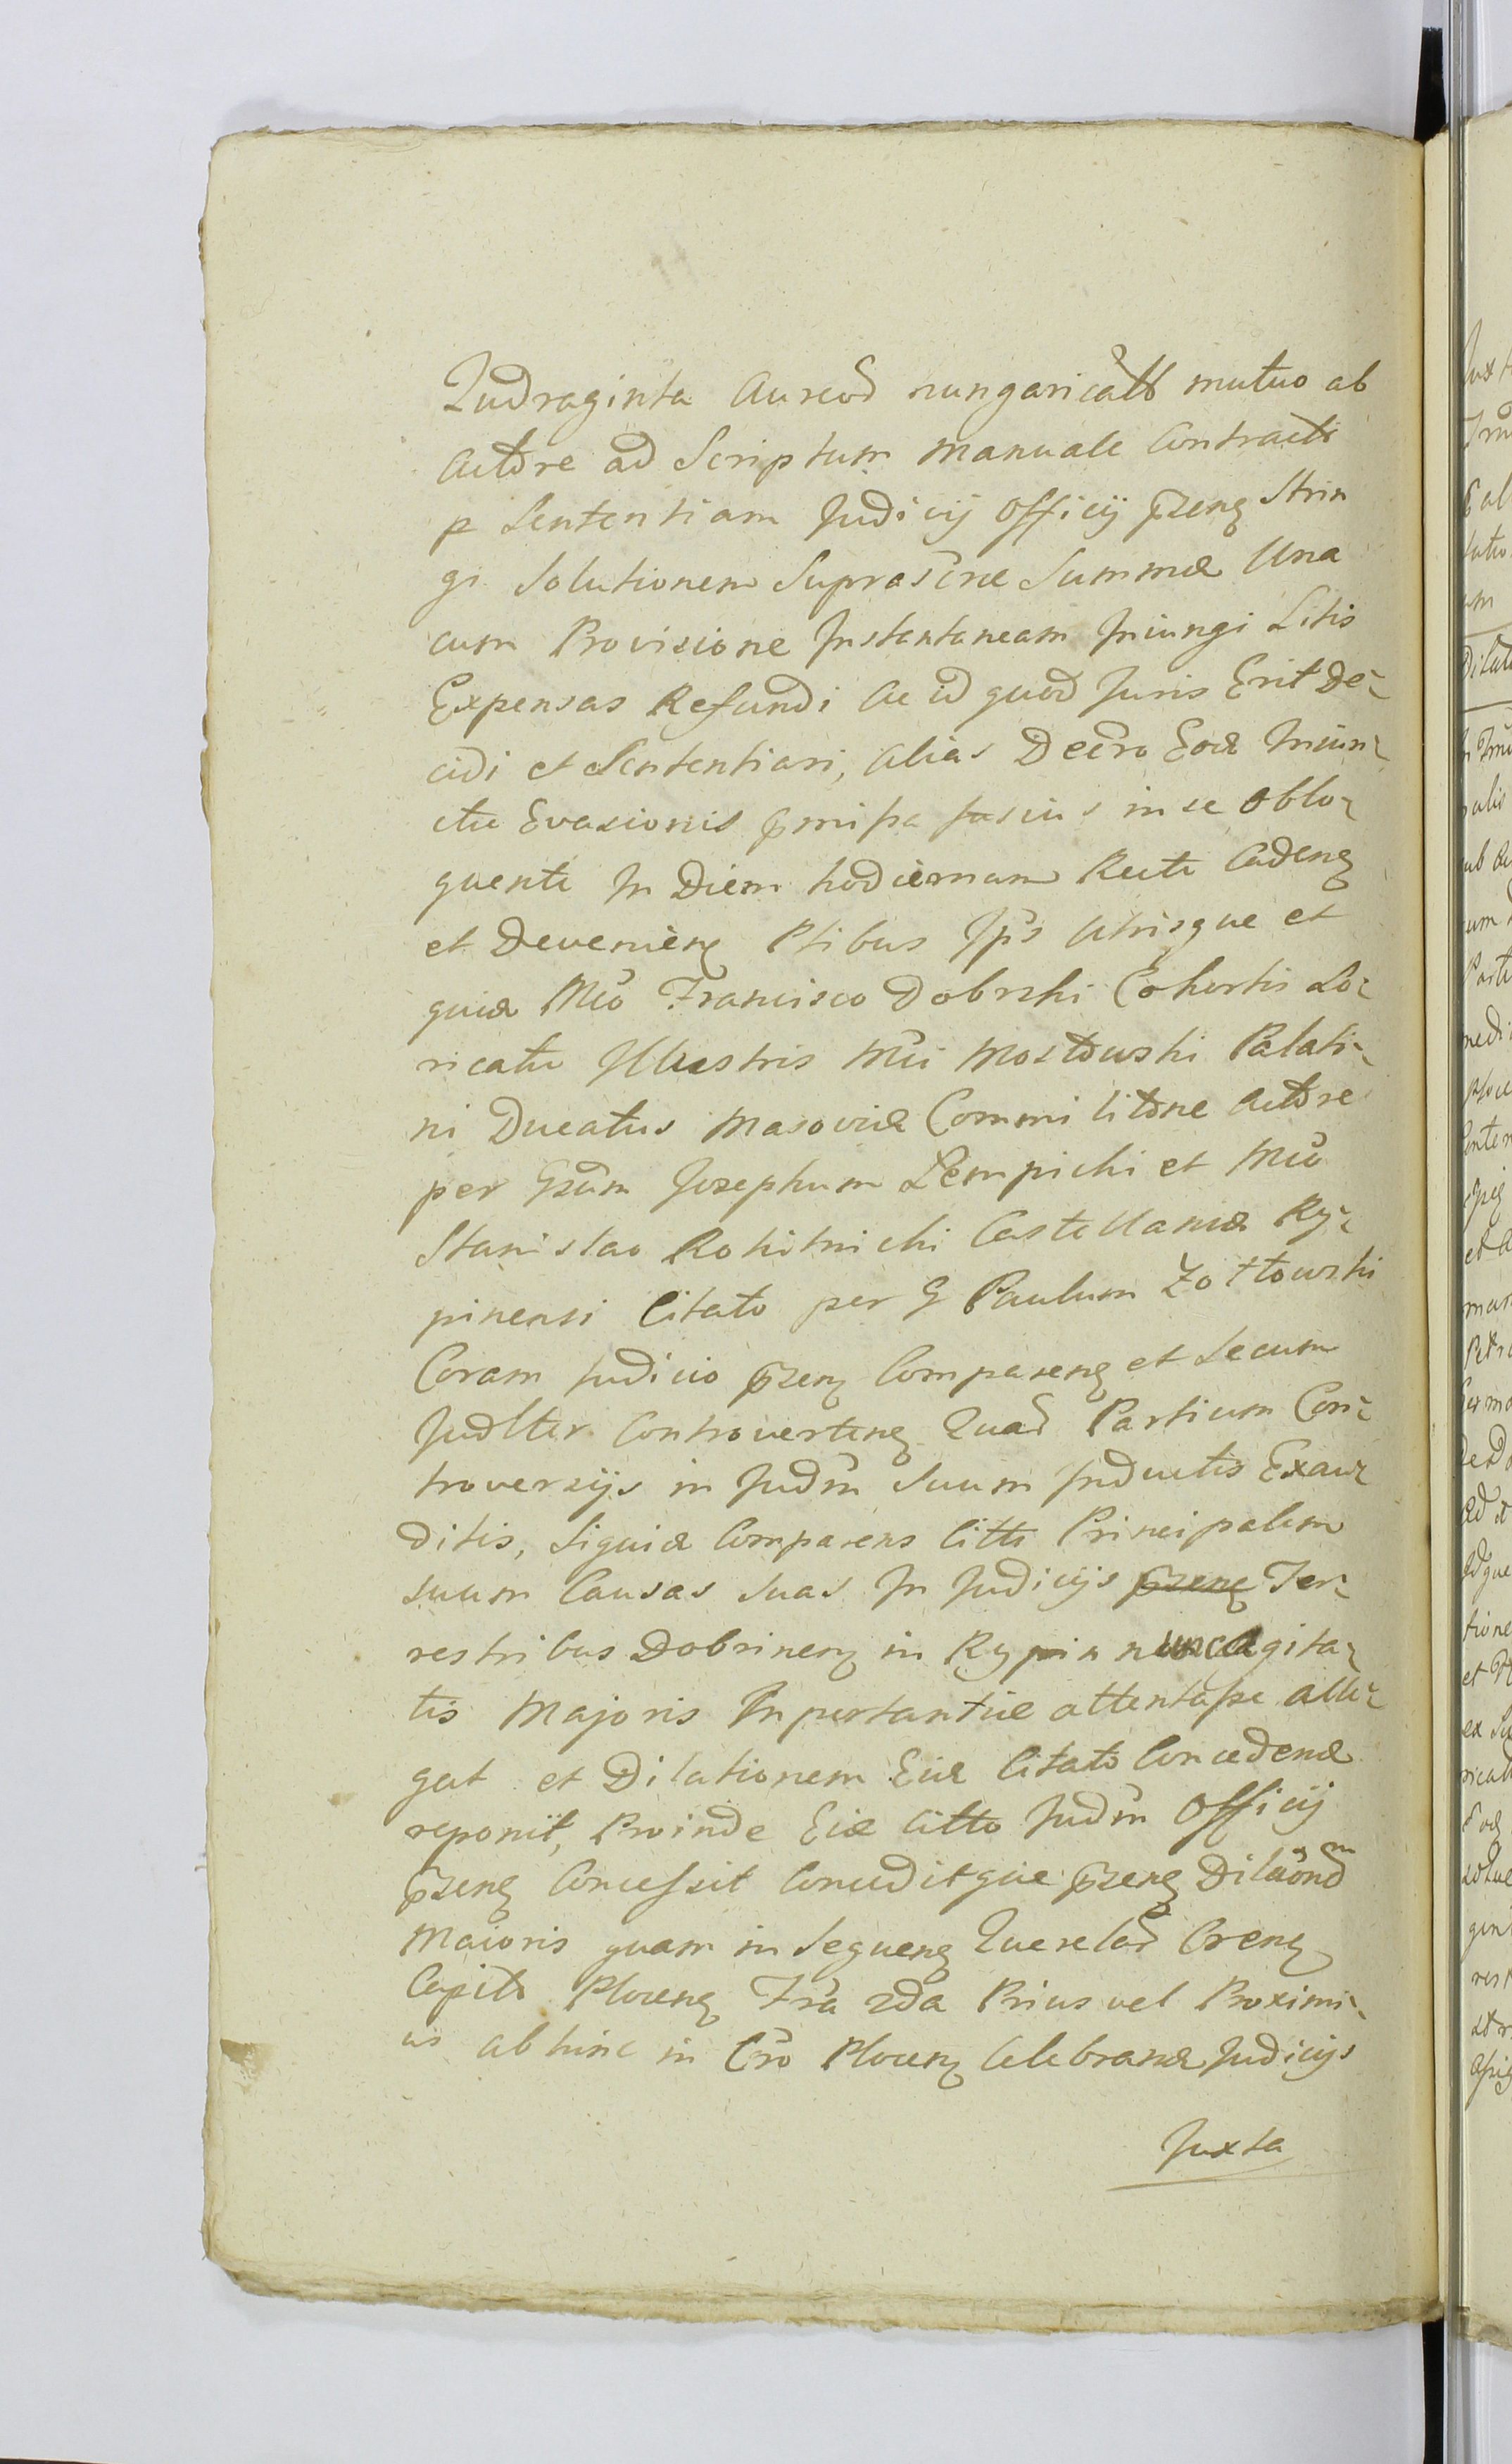 Qudraginta Aureod nungaricalb mutuo ab
Actore ad Scriptum manuale Contracto
p Sententiam Judicij Officij przenę Strin
gi Solutionem Suprascrae Summae Una
cum Provisione Instantaneam Iniungi Litis
Expensas Refundi Ac id quod Juris Erit De-
cidi et Sententiari, Alias Decro Eod Iniun-
cta Evasionis in se Oblo-
quente In Diem hodiernam Recte Cadenę
et Devenienę Ptibus Ips Utrisque et
quia Mco Francisco Dobrski Cohortis Lo-
ricatae Illustris Mci Mostowski Palati-
ni Ducatus Masoviae Commilitone Actore
per Gsum Josephum Lempicki et Mco
Stanislao Rokitnicki Castellanid Ry-
pinensi Citato per G Paulum Zołtowski
Coram Judicio przenę Comparenę et Secum
Judlter Controvertenę Quar Partium Con-
troversijs in Judm Suum Inductis Exau-
ditis, Siquid Comparens Citti Principalem
suum Causas suas In Judicijs przenę Ter-
restribus Dobrinenę in Rypin nunc Agita-
tis Majoris Importantiae attentasse alle-
gat et Dilationem Eid Citato Concedend
reponit, Proinde Eid Citto Judm Officij
przenę Concessit Conceditque przenę Dilaond
Maioris quam in Sequenę Querelar Crenę
Capit Plocenę Fra 2da Prius vel Proximi-
us abhinc in Cro Plocenę Celebrand Judicijs
Juxta